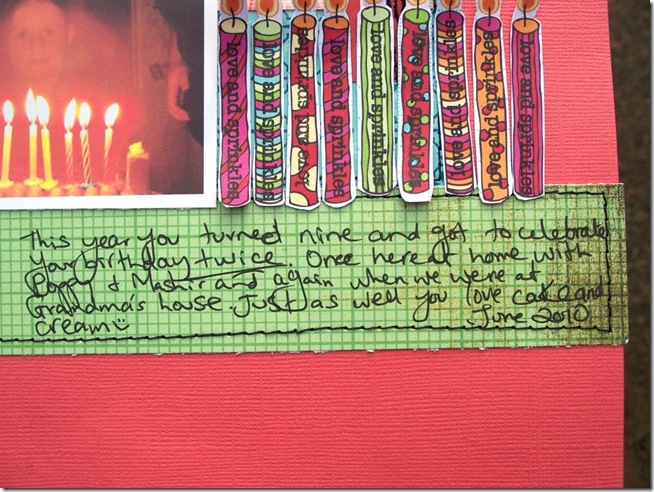 love and sprinkles
love and sprinkles
love and sprinkles
love and sprinkles
love and sprinkles
love and sprinkles
love and sprinkles
love and sprinkles
love and sprinkles
This year you turned nine and got to celebrate
your birthday twice. Once here at home with
Poppy & and again when we were at
Grandma's house. Just as well you love cake and
cream
June 2010